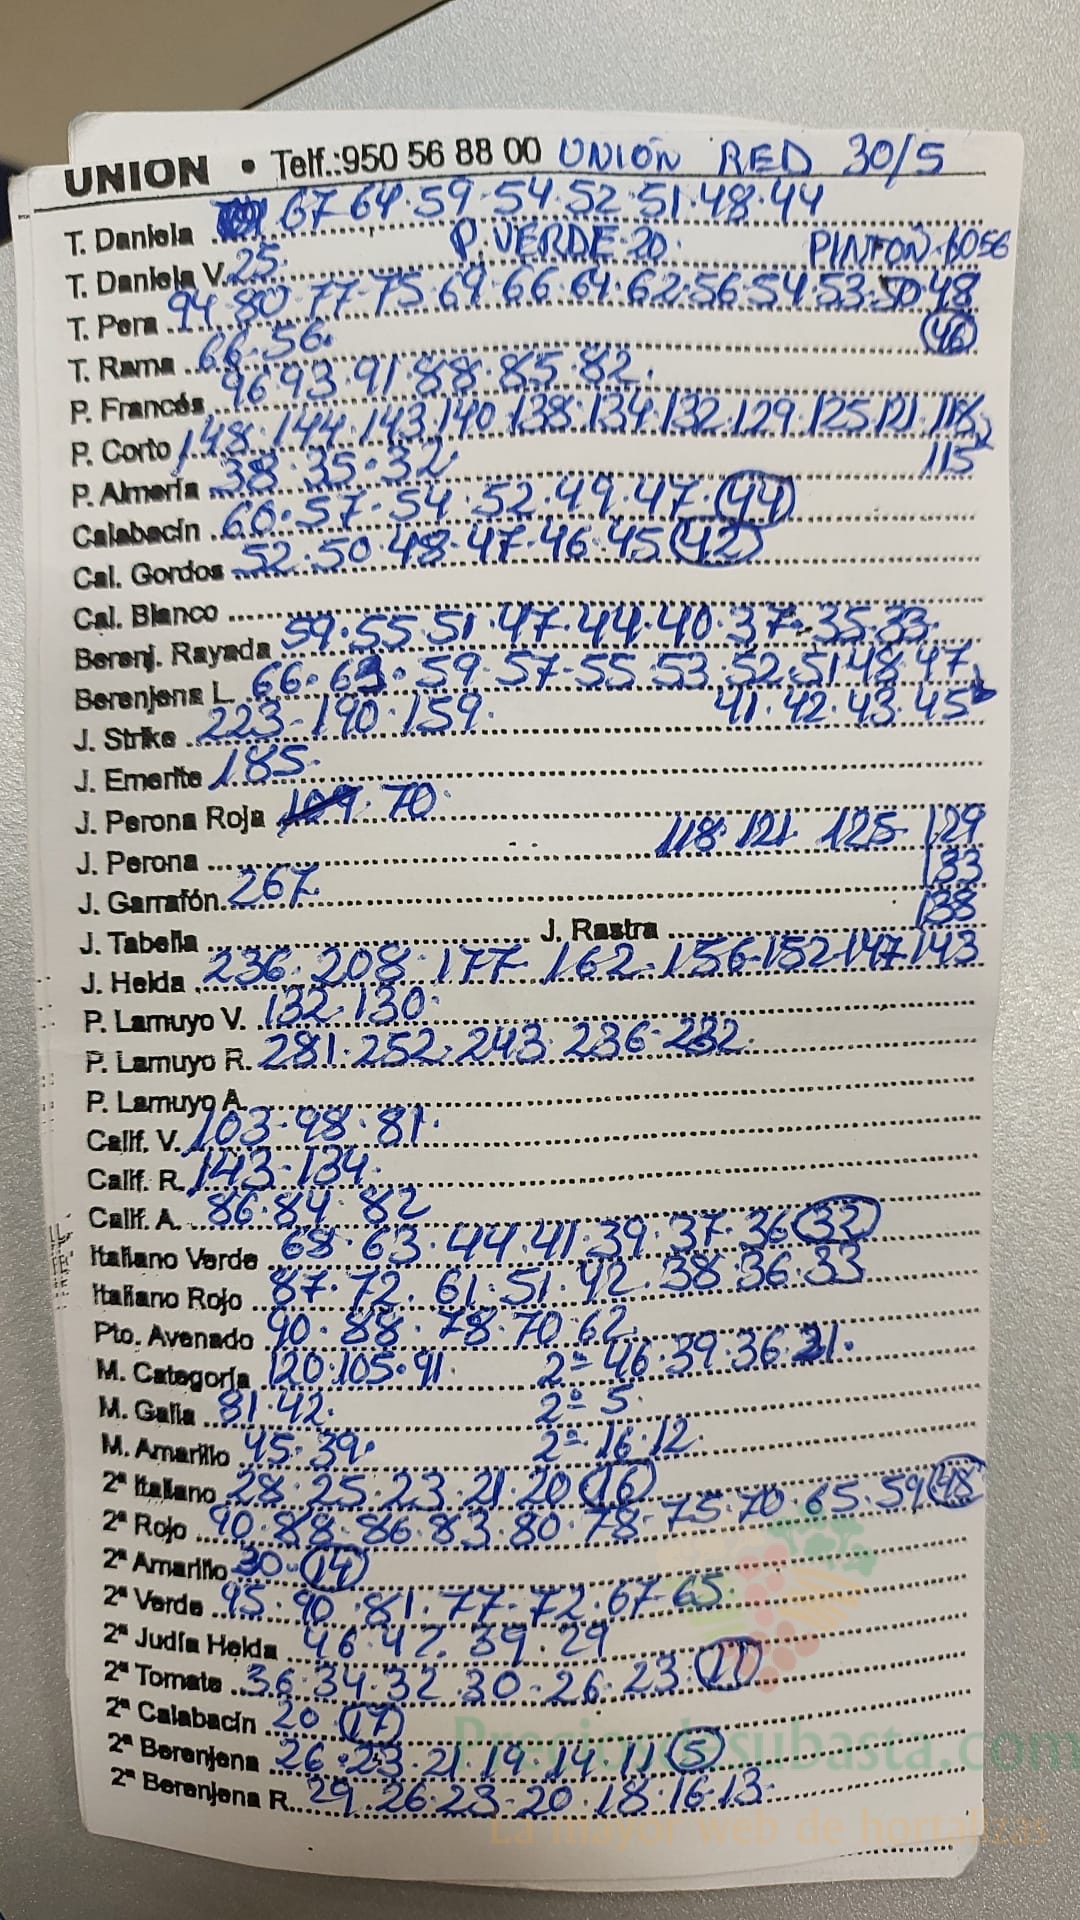 UNION • Telf.:950 56 88 00 UNIÓN RED 30/5
T. Daniela 67 64·59·54·52·51·48·44
P. VERDE·20. PINTÓN·6056
T. Daniela V. 25.
T. Pera 94·80·77-75·69·66·64·62·56·54·53·50·48
(46)
T. Rama 66·56.
P. Francés 96 93·91·88·85·82.
P. Corto 148·144·143·140·138·134·132·129·125·121·118
115
P. Almería 38·35·32
Calabacín 60·57·54·52·49·47·(44)
Cal. Gordos 52·50·48·47·46·45 (42)
Cal. Blanco
Berenj. Rayada 59·55 51·47·44·40·37·35·33·
Berenjena L. 66·63·59·57·55·53·52·51·48·47
41·42·43·45
J. Strike 223-190·159.
J. Emerite 185.
J. Perona Roja 70·
118·121 125 129
J. Perona
133
J. Garrafón 267.
138
J. Tabella J. Rastra
J. Helda 236·208·177 162·156·152·147·143
P. Lamuyo V. 132·130·
P. Lamuyo R. 281·252·243·236·232
P. Lamuyo A.
Calif. V. 103·98·81.
Calif. R. 143-134
Calif. A. 86·84·82
Italiano Verde 68·63·44·41·39·37·36 (32)
Italiano Rojo 87·72·61·51·42·38·36·33
Pto. Avenado 90·88·78·70·62
M. Categoría 120·105·91. 2ª 46·39·36·21.
M. Galia 81·42. 2ª 5.
M. Amarillo 45·39. 2ª·16·12.
2ª Italiano 28·25·23·21·20 (16)
2ª Rojo 90·88·86·83·80·78·75·70·65·59 (48)
2ª Amarillo 30·(14)
2ª Verde 95·90·81·77·72·67·65
2ª Judía Helda 46·42·39·29
2ª Tomate 36·34·32·30·26·23·(11)
2ª Calabacín 20 (17)
2ª Berenjena 26·23·21·19·14·11 (5)
2ª Berenjena R. 29·26·23·20·18·16·13·
Preciosdesubasta.com
La mayor web de hortalizas